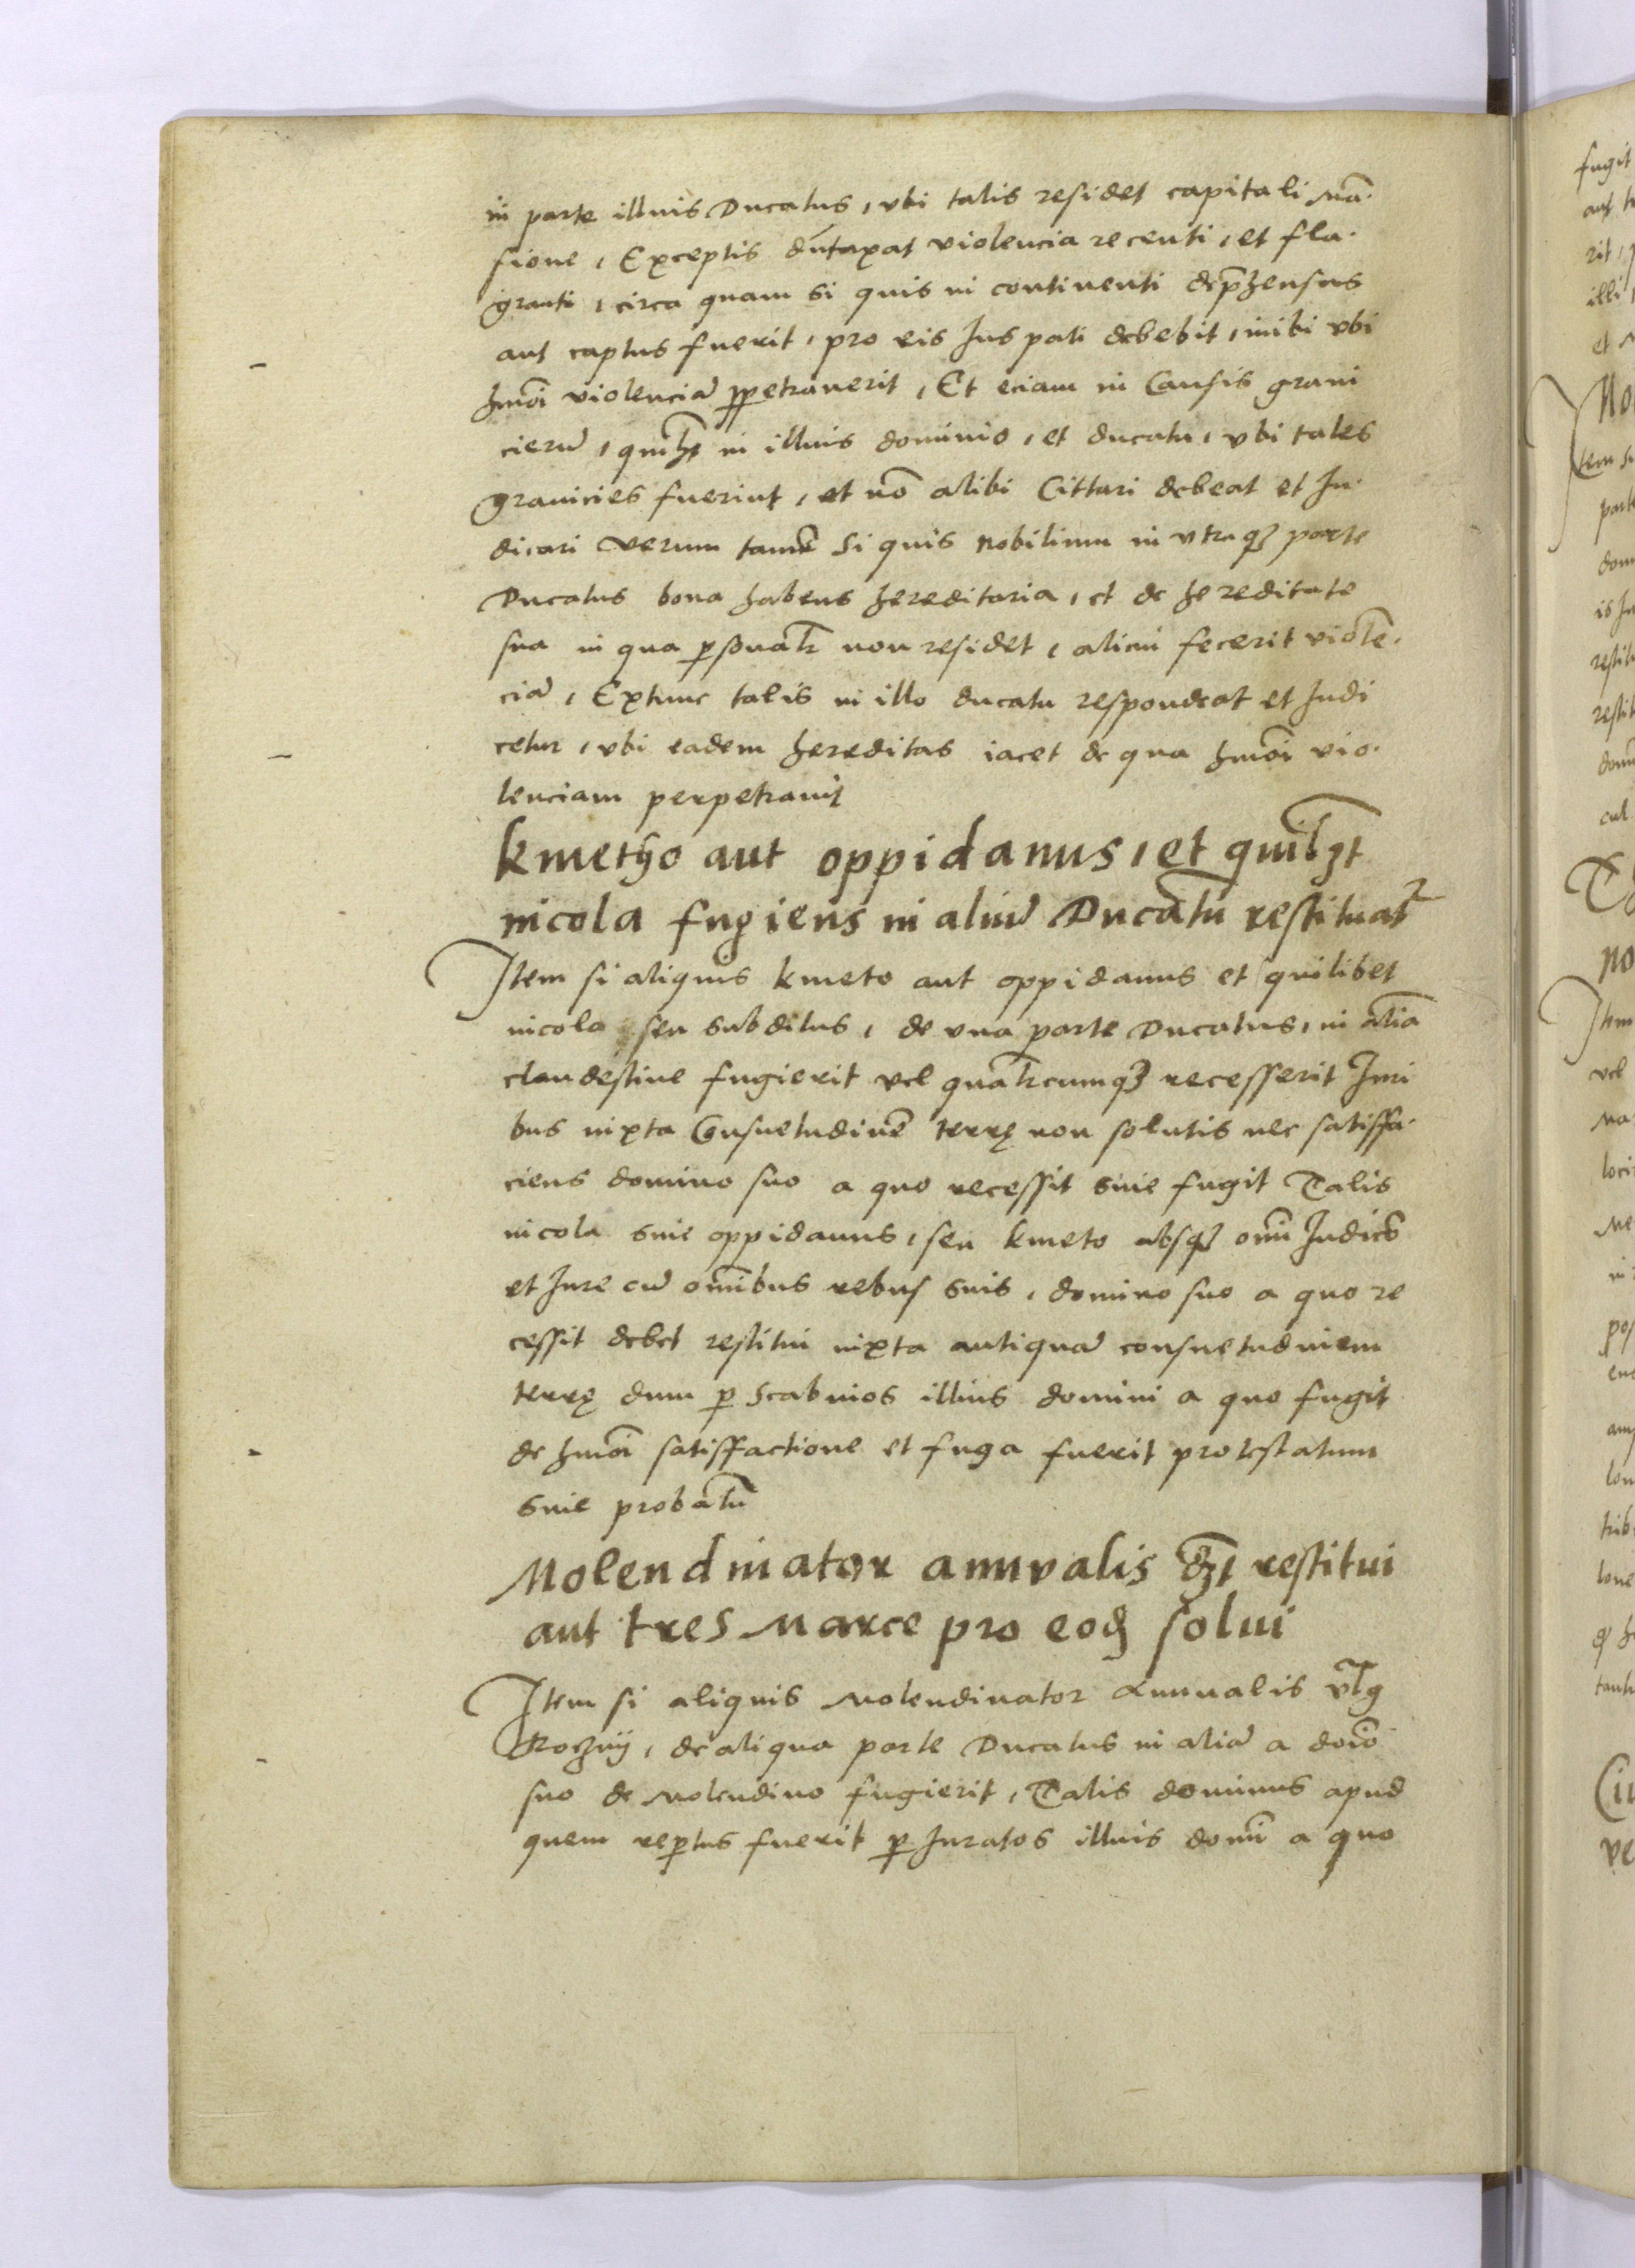 in parte illius Ducatus, vbi talis residet capitali mā.
sione, Exceptis dūtaxat violencia recenti, et fla.
granti, circa quam si quis in continenti dep̄hensus
aut captus fuerit, pro eis Jus pati debebit, inibi vbi
hmōi violenciā ꝑpetrauerit, Et eciam in Causis grani
cierū, quilibꝫ in illius dominio, et ducatu, vbi tales
granicies fuerint, et nō alibi Cittari debeat et Ju.
dicari Verum tamē Si quis Nobilium in vtraqꝫ parte
Ducatus bona habens hereditaria, et de hereditate
sua in qua ꝑsonalr̄ non residet, alicui fecerit violē.
ciā, Extunc talis in illo ducatu respondeat et Judi
cetur, vbi eadem hereditas iacet de qua hmōi vio.
lenciam perpetrauit
kmetho aut oppidanus, et quil̄bꝫt
incola fugiens in aliū Ducatū restituat᷑
Item si aliquis kmeto aut oppidanus et quilibet
incola seu subditus, de vna parte Ducatus, in aliā
clandestine fugierit vel qualr̄cumqꝫ recesserit Juri
bus iuxta Consuetudinē terrę non solutis nec satisffa.
ciens domino suo a quo recessit siue fugit Talis
incola siue oppidanus, seu kmeto absqꝫ omni Judicō
et Jure cū om̄ibus rebus suis, domino suo a quo re
cessit debet restitui iuxta antiquā consuetudinem
terrę dum ꝑ Scabinos illius domini a quo fugit
de hmōi satisffactione et fuga fuerit protestatum
siue probatū
Molendinator annvalis dꝫt restitui
aut tres Marce pro eodꝫ solui
Item si aliquis Molendinator Annualis vl̄g
Roczny, de aliqua parte Ducatus in aliā a domō
suo de Molendino fugierit, Talis dominus apud
quem reꝑtus fuerit ꝑ Juratos illius domi a quo